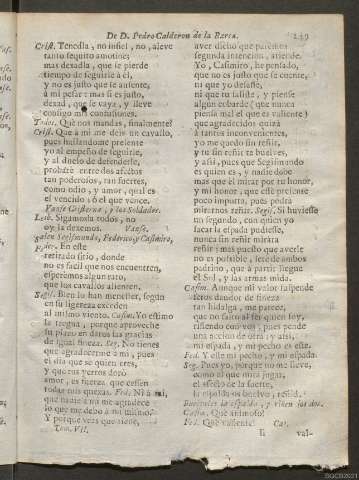 De D. Pedro Calderon de la Barca. 249
Crist. Tenedla, no infiel, no, aleve
tanto sequito amotine;
mas dexadla, que se pierde
tiempo de seguirle à èl,
y no es justo que se ausente,
à mi pesar: mas sì es justo,
dexad, que se vaya, y lleve
consigo mis confusiones.
Todos. Què nos mandas, finalmente?
Crist. Que à mi me deis un cavallo,
pues hallandome presente
yo al empeño de seguirle,
y al duelo de defenderle,
probarè entre dos afectos
tan poderosos, tan fuertes,
como odio, y amor, qual es
el vencido, ò el que vence.
Vanse Cristerna, y los Soldados.
Lesb. Sigamosla todos, no
oy la dexemos. Vanse.
Salen Segismundo, Federico, y Casimiro,
Feder. En este
retirado sitio, donde
no es facil que nos encuentren,
esperemos algun rato,
que los cavallos alienten.
Segis. Bien lo han menester, segun
en su ligereza exceden
al mismo viento. Casim. Yo estimo
la tregua, porque aproveche
su plazo en daros las gracias
de igual fineza. Seg. No tienes
que agradecerme à mi, pues
el dia que se quien eres,
y que tus yerros dorò
amor, es fuerza que cessen
todas mis quexas. Fed. Ni à mi,
que nadie à mi me agradece
lo que me debo à mi mismo?
Y porque veas que tiene,
Tom. VII.
aver dicho que parèmos
segunda intencion, atiende.
Yo, Casimiro, he pensado,
que no es justo que se cuente,
ni que yo desafie,
ni que tu faliste, y piense
algun cobarde (que nunca
piensa mal el que es valiente)
que agradecidos quizà
à tantos inconvenientes,
yo me quedo sin reñir,
y tu sin reñir te buelves,
y assi, pues que Segismundo
es quien es, y nadie debe
mas que èl mirar por tu honor,
y mi honor, que estè presente
poco importa, pues podrà
mirarnos reñir. Segis. Si huviesse
un segundo, con quien yo
sacar la espada pudiesse,
nunca sin reñir mirara
reñir; mas puesto que averle
no es possible, serè de ambos
padrino, que à partir llegue
el Sol, y las armas mida.
Casim. Aunque mi valor suspende
veros deudor de fineza
tan hidalga, me parece,
que no falto al ser quien soy,
riñendo con vos, pues pende
una accion de otra; y assi,
mi espada, y mi pecho es este.
Fed. Y este mi pecho, y mi espada.
Seg. Pues yo, porque no me lleve,
como al que mira jugar,
el afecto de la suerte,
la espalda os buelvo, reñid.
Buelveles la espalda, y riñen los dos.
Casim. Què animoso!
Fed. Què valiente! Cas.
Ii val-